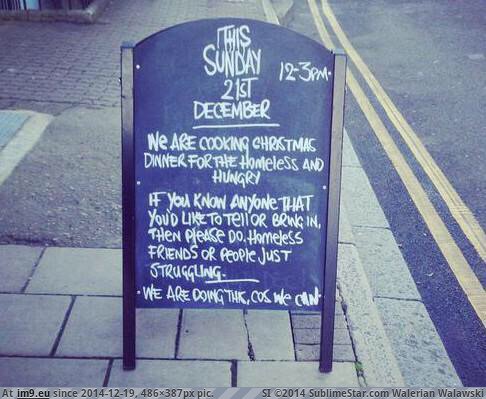 THIS
SUNDAY 12-3PM.
21ST
DECEMBER
WE ARE COOKING CHRISTMAS
DINNER FOR THE HOMELESS AND
HUNGRY
IF YOU KNOW ANYONE THAT
YOU'D LIKE TO TELL OR BRING IN,
THEN PLEASE DO. HOMELESS
FRIENDS OR PEOPLE JUST
STRUGGLING.
WE ARE DOING THIS, COS WE CAN
At im9.eu since 2014-12-19, 486×387px pic. SI ©2014 SublimeStar.com Walerian Walawski